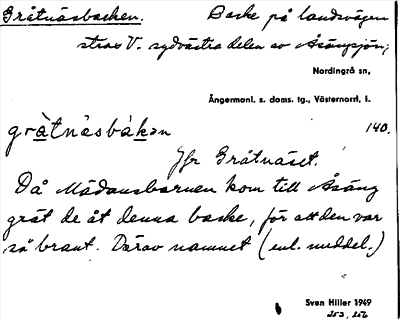 Gråtnäsbacken.
Backe på landsvägen
strax V. sydvästra delen av Åsängsjön;
Nordingrå sn,
Ångermanl. s. doms. tg., Västernorrl. l.
gràtnäsbàkən
140.
Jfr Gråtnäset.
Då Mädansbarnen kom till Åsäng
grät de åt denna backe, för att den var
så brant. Därav namnet (enl. meddel.)
Sven Hiller 1949
253, 256